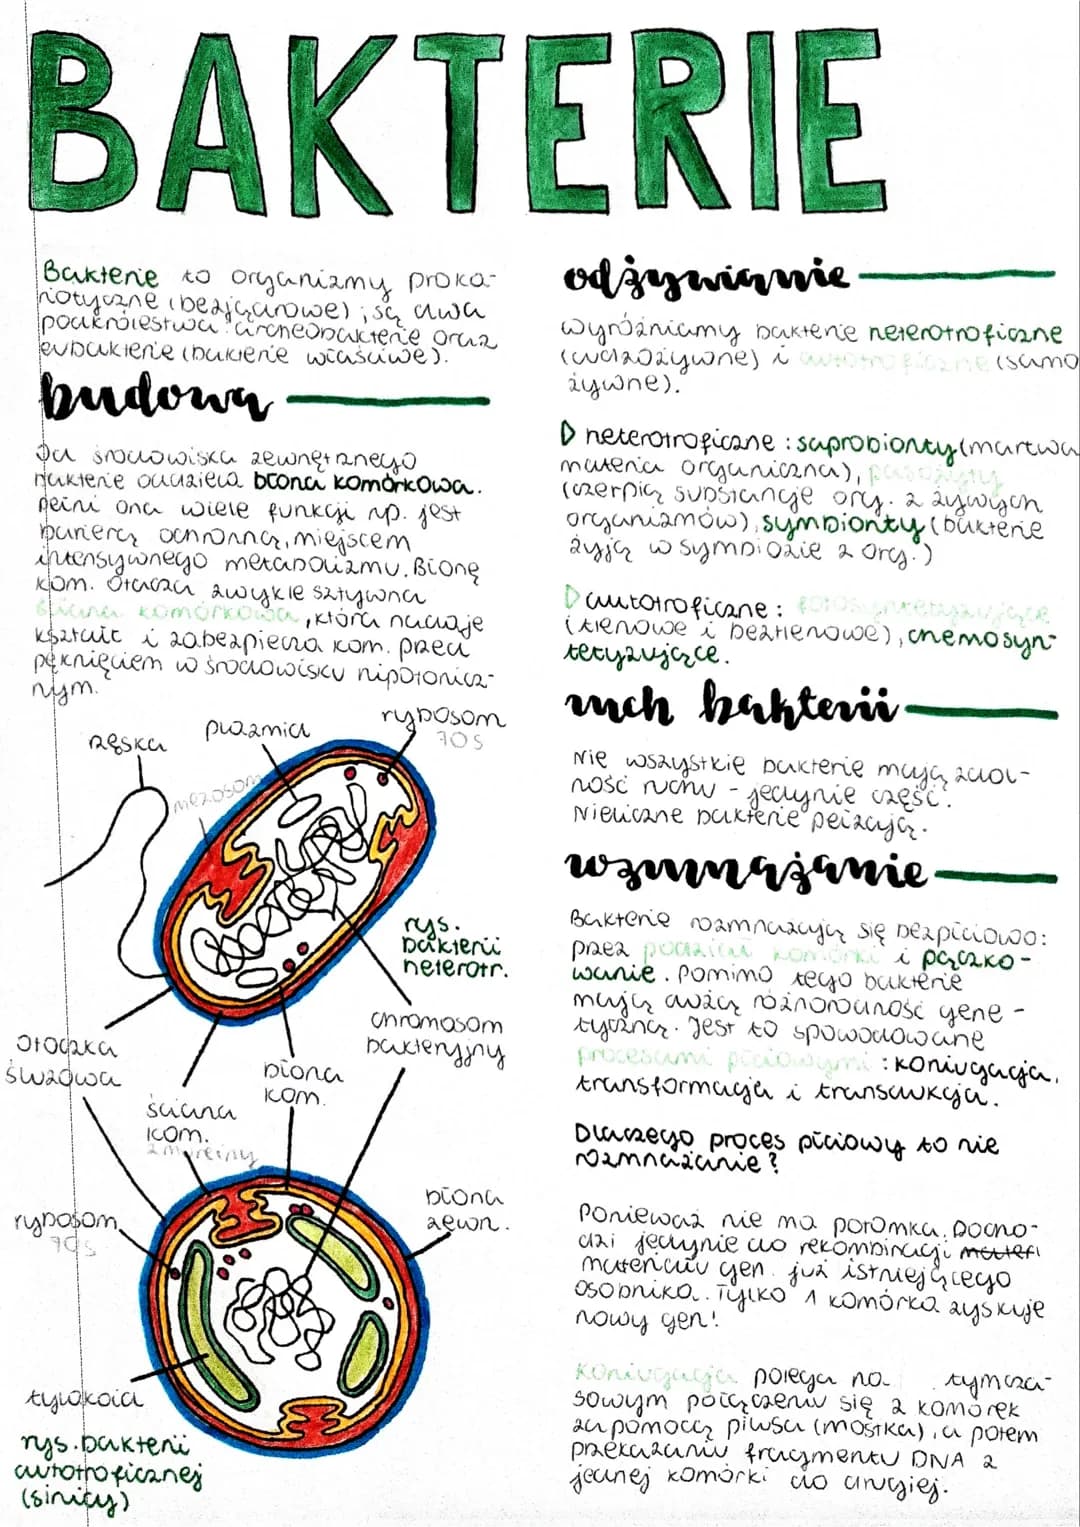 BAKTERIE
Bakterie to organizmy proka-
riotyczne (bezjądrowe); są dwa
podkrólestwa: archeobakterie oraz
eubakterie (bakterie właściwe).
budowa
Od środowiska zewnętrznego
bakterie oddziela błona komórkowa.
Pełni ona wiele funkcji np. jest
barierą ochronną, miejscem
intensywnego metabolizmu. Błonę
kom. otacza zwykle sztywna
ściana komórkowa, która nadaje
kształt i zabezpiecza kom. przed
pęknięciem w środowisku hipotonicz-
nym.
rzęska
plazmid
rybosom
70 S
mezosom
rys.
bakterii
heterotr.
chromosom
bakteryjny
otoczka
śluzowa
błona
kom.
ściana
kom.
z mureiny
rybosom
70 S
błona
zewn.
tylakoid
rys. bakterii
autotroficznej
(sinicy)
odżywianie
Wyróżniamy bakterie heterotroficzne
(cudzożywne) i autotroficzne (samo
żywne).
heterotroficzne: saprobionty (martwa
materia organiczna), pasożyty
(czerpią substancje org. z żywych
organizmów), symbionty (bakterie
żyją w symbiozie z org.)
autotroficzne: fotosyntetyzujące
(tlenowe i beztlenowe), chemosyn-
tetyzujące.
ruch bakterii
Nie wszystkie bakterie mają zdol-
ność ruchu - jedynie część.
Nieliczne bakterie pełzają.
rozmnażanie
Bakterie rozmnażają się bezpłciowo:
przez podział komórki i pączko-
wanie. Pomimo tego bakterie
mają dużą różnorodność gene-
tyczną. Jest to spowodowane
procesami płciowymi: koniugacja,
transformacja i transdukcja.
Dlaczego proces płciowy to nie
rozmnażanie?
Ponieważ nie ma potomka. Docho-
dzi jedynie do rekombinacji materi
materiału gen. już istniejącego
osobnika. Tylko 1 komórka zyskuje
nowy gen!
Koniugacja polega na tymcza-
sowym połączeniu się 2 komórek
za pomocą pilusa (mostka), a potem
przekazaniu fragmentu DNA z
jednej komórki do drugiej.